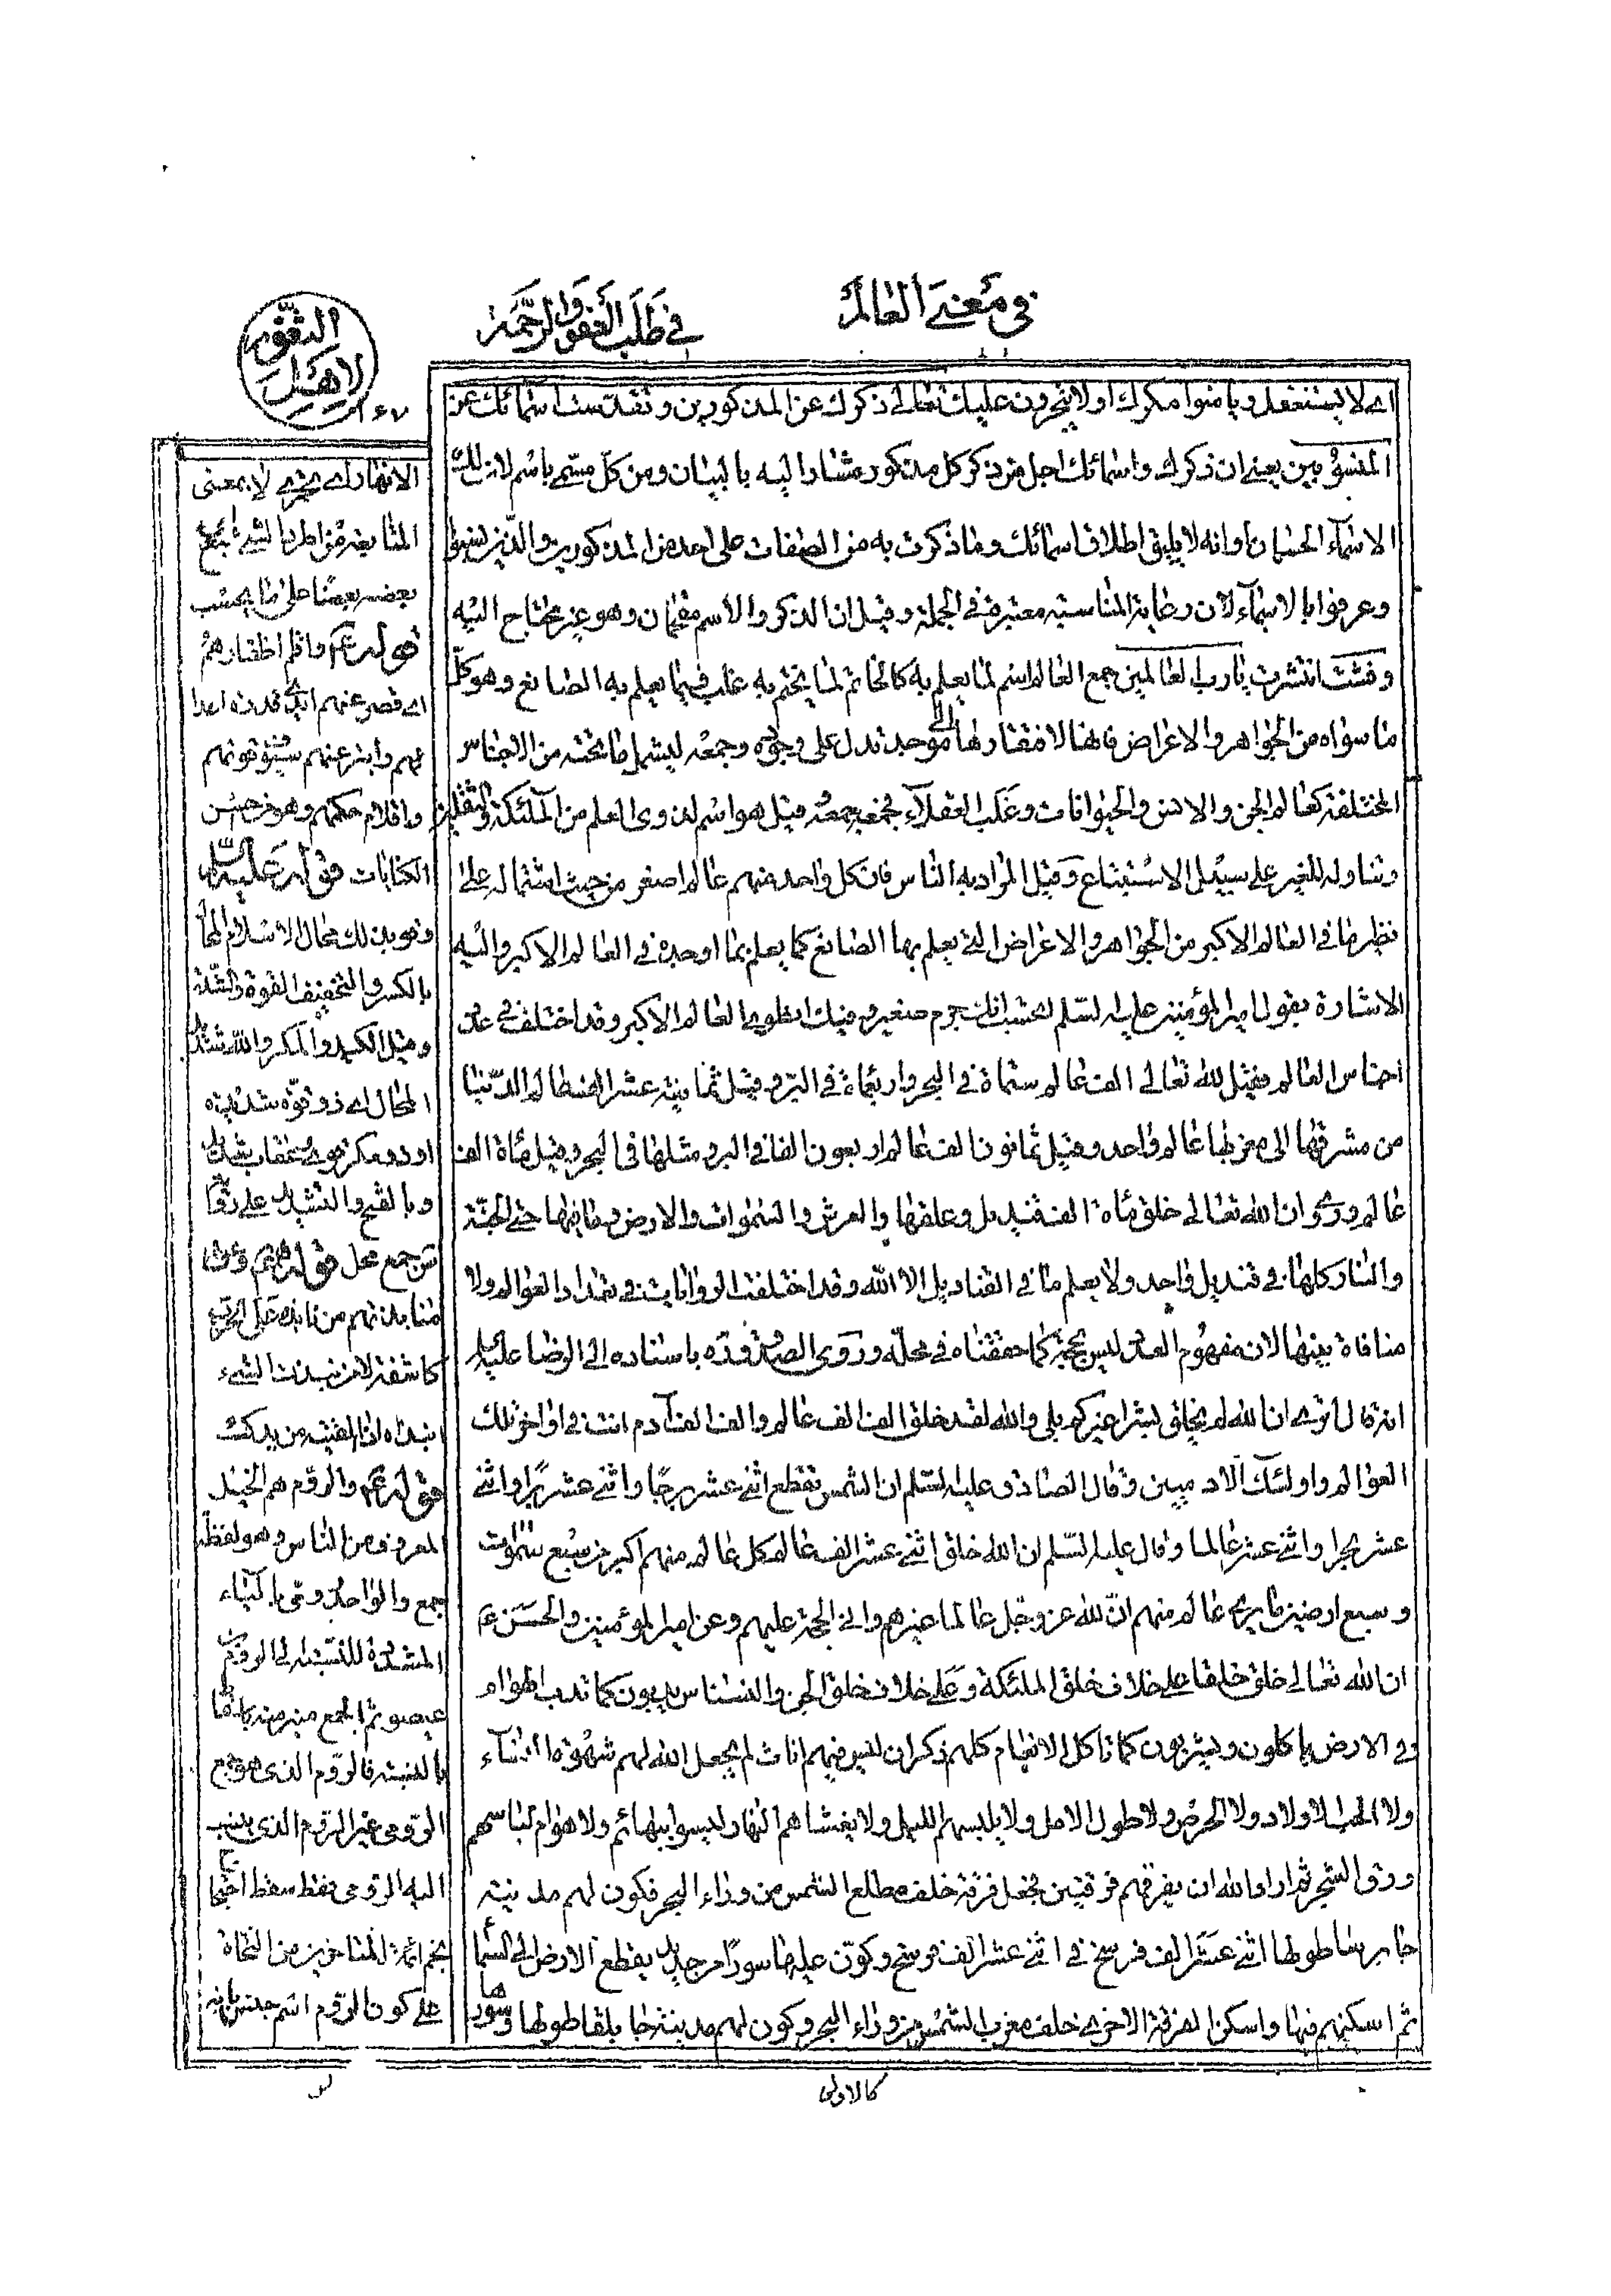 في معنى العالم
في طلب العفو والرحمة
الثغور
لاهل
اى لا يستغفل ويامنوا مكرك اولا يجرون عليك تعالى ذكرك عن المذكورين وتقدست اسمائك عن
المنسوبين يعنى ان ذكرك واسمائك اجل من ذكر كل مذكور مشارا اليه بالبيان ومن كل مسمى باسم لان لك
الاسماء الحسنى وانه لا يليق اطلاق اسمائك وما ذكرت به من الصفات على احد من المذكورين والذين نسبوا
وعرفوا بالاسماء لان رعاية المناسبة معتبرة في الجملة وقيل ان الذكر والاسم مقحمان وهو غير محتاج اليه
وفشت انتشرت يا رب العالمين جمع العالم اسم لما يعلم به كالخاتم لما يختم به غلب فيما يعلم به الصانع وهو كل
ما سواه من الجواهر والاعراض فانها لافتقارها الى موجد تدل على وجوده وجمعه ليشمل ما تحته من الاجناس
المختلفة كعالم الجن والانس والحيوانات وغلب العقلاء فجمعه قيل هو اسم لذوى العلم من الملئكة والثقلين
وتناوله للغير على سبيل الاستتباع وقيل المراد به الناس فان كل واحد منهم عالم اصغر من حيث اشتماله على
نظير ما في العالم الاكبر من الجواهر والاعراض التي يعلم بها الصانع كما يعلم بما اوجده في العالم الاكبر واليه
الاشارة بقول امير المؤمنين عليه السلم اتحسب انك جرم صغير وفيك انطوى العالم الاكبر وقد اختلف في عدد
اجناس العالم فقيل لله تعالى الف عالم ستماة في البحر واربعماة في البر وقيل ثمانية عشر الف عالم الدنيا
من مشرقها الى مغربها عالم واحد وقيل ثمانون الف عالم اربعون الفا في البر ومثلها في البحر وقيل مأة الف
عالم وروى ان الله تعالى خلق مأة الف قنديل وعلقها والعرش والسموات والارض وما فيها حتى الجنة
والنار كلها في قنديل واحد ولا يعلم ما في القناديل الا الله وقد اختلفت الروايات في تعداد العوالم ولا
منافاة بينها لان مفهوم العدد ليس بحجة كما حققناه في محله وروى الصدوق ره باسناده الى الرضا عليه السلم
انه قال اترى ان الله لم يخلق بشرا غيركم بلى والله لقد خلق الف الف عالم والف الف آدم انت في اواخر تلك
العوالم واولئك الآدميين وقال الصادق عليه السلم ان الشمس تقطع اثنى عشر برجا واثنى عشر برا واثنى
عشر بحرا واثنى عشر عالما وقال عليه السلم ان الله خلق اثنى عشر الف عالم كل عالم منهم اكبر من سبع سموات
وسبع ارضين ما يرى عالم منهم ان لله عز وجل عالما غيرهم وانى الحجة عليهم وعن امير المؤمنين والحسن ع
ان الله تعالى خلق خلقا على خلاف خلق الملئكة وعلى خلاف خلق الجن والنسناس يدبون كما تدب الهوام
في الارض ياكلون ويشربون كما تاكل الانعام كلهم ذكران ليس فيهم اناث لم يجعل الله لهم شهوة النساء
ولا الحب الاولاد ولا الحرص ولا طول الامل ولا يلبسهم الليل ولا يغشاهم النهار وليسوا ببهائم ولا هوام لباسهم
ورق الشجر ثم اراد الله ان يفرقهم فرقتين فجعل فرقة خلف مطلع الشمس من وراء البحر فكون لهم مدينة
جابرسا طولها اثنى عشر الف فرسخ في اثنى عشر الف فرسخ وكون عليها سورا من حديد يقطع الارض الى السما
ثم اسكنهم فيها واسكن الفرقة الاخرى خلف مغرب الشمس من وراء البحر وكون لهم مدينة جابلقا طولها وسورها
كالاولى
الانهار اى يجرى لا بمعنى
المتابعة من اطرد الشيء تبع
بعضه بعضا على ما يحسب
قوله ع وقلم اظفارهم
اى قصر عنهم ايدى
عنهم
واقلام حكمهم وهو من حسن
الكنايات قوله عليه السلم
وقو بذلك محال الاسلام المحال
بالكسر والتخفيف القوة والشدة
وقيل الكيد والمكر والله شديد
المحال اى ذو قوة شديدة
او ذو مكر قوى وعقاب شديد
وبالفتح والتشديد على
جمع محل قوله
منابذتهم من
كاشفة لا من نبذت الشيء
انبذه اذا القيته من يدك
قوله ع والروم هم الجيل
المعروف من الناس وهو لفظ
جمع والواحد رومى بالياء
المشددة للنسبة الى الروم بن
عيصو ثم الجمع ميز منه بالتا
بالنسبة فالروم الذى هو جمع
الرومى غير الروم الذى ينسب
اليه الرومى فقط سقط احتجاج
نجم الائمة المتاخرين من النحاة
على كون الروم اسم جنس بانه